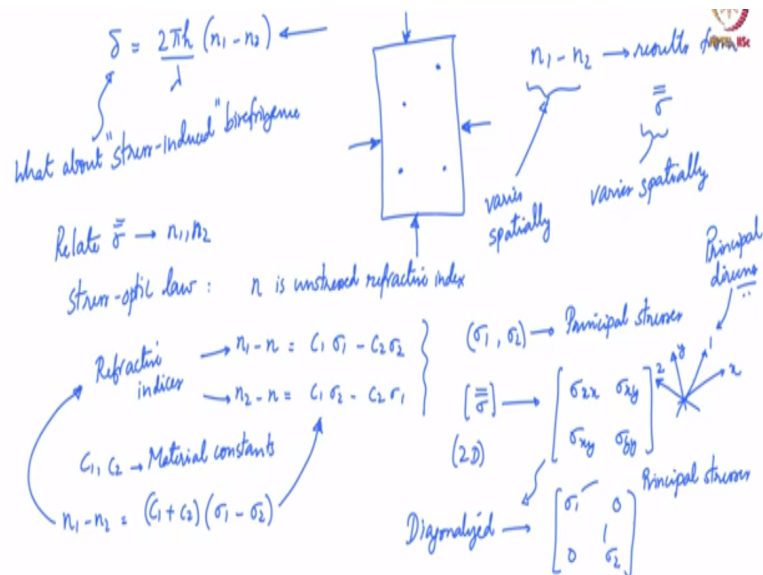 δ = 2πh/λ (n₁ - n₂) ←
What about "stress-induced" birefringence
n₁ - n₂ → results from
σ̿
varies spatially
varies spatially
Relate σ̿ → n₁, n₂
Stress-optic law : n is unstressed refractive index
Refractive indices
→ n₁ - n = C₁ σ₁ - C₂ σ₂
→ n₂ - n = C₁ σ₂ - C₂ σ₁
C₁, C₂ → Material constants
n₁ - n₂ = (C₁ + C₂) (σ₁ - σ₂)
(σ₁, σ₂) → Principal stresses
[σ̿] → [σxx σxy
σxy σyy]
(2D)
Principal
2 y 1 x
Diagonalized → [σ₁ 0
0 σ₂]
Principal stresses